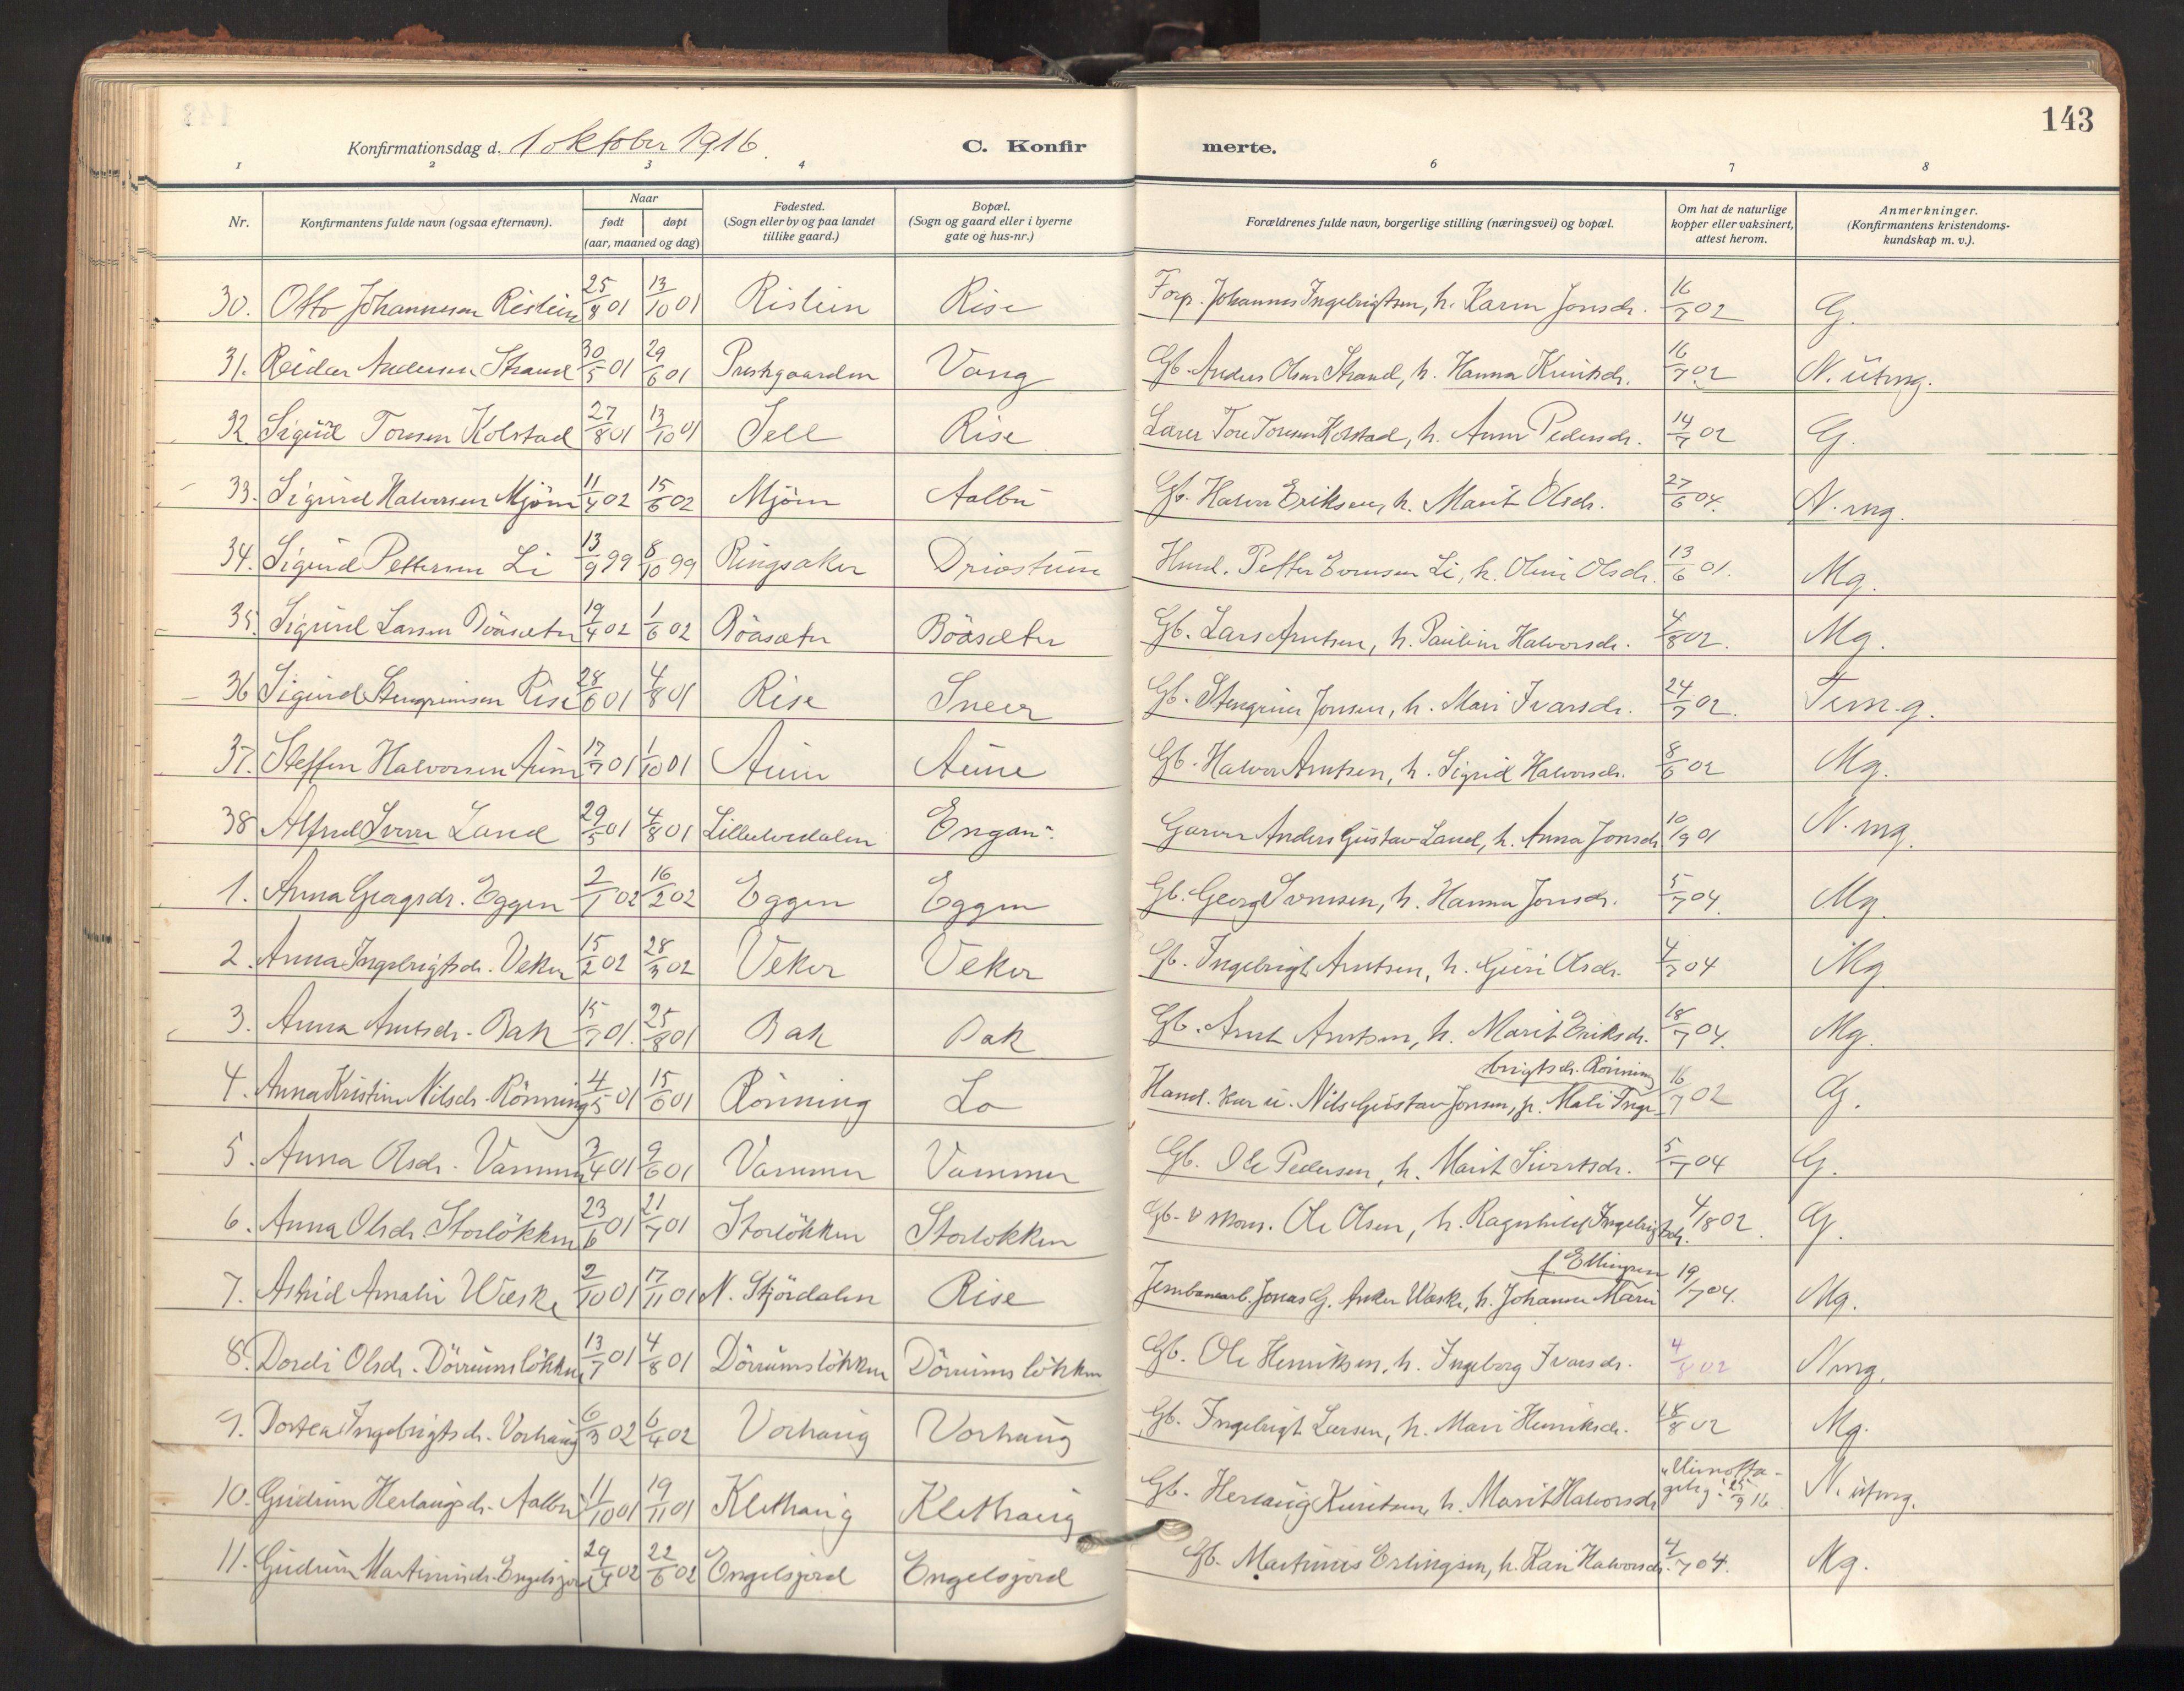 143
Konfirmationsdag d. 1 oktober 1916. C. Konfirmerte.
1 2 3 4 6 7 8
Nr. Konfirmantens fulde navn (ogsaa efternavn). Naar født døpt (aar, maaned og dag) Fødested. (Sogn eller by og paa landet tillike gaard.) Bopæl. (Sogn og gaard eller i byerne gate og hus-nr.) Forældrenes fulde navn, borgerlige stilling (næringsvei) og bopæl. Om hat de naturlige kopper eller vaksinert, attest herom. Anmerkninger. (Konfirmantens kristendoms-kundskap m. v.).
30. Otto Johannesen Rislien 25/8 01 13/10 01 Rislien Rise Forp. Johannes Ingebrigtsen, h. Karen Jonsdr. 16/7 02 G.
31. Reidar Andersen Strand 30/5 01 29/6 01 Prestgaarden Vang Gb. Anders Olsen Strand, h. Hanna Knutsdr. 16/7 02 N. utmg.
32 Sigurd Toresen Kolstad 27/8 01 13/10 01 Sell Rise Lærer Tore Toresen Kolstad, h. Anne Pedersdr. 14/7 02 G.
33. Sigurd Halvorsen Mjöen 11/4 02 15/6 02 Mjöen Aalbu Gb. Halvor Eriksen, h. Marit Olsdr. 27/6 04. N. mg.
34. Sigurd Pettersen Li 13/9 99 8/10 99 Ringsaker Drivstuen Husd. Petter Evensen Li, h. Oline Olsdr. 13/6 01. Mg.
35. Sigurd Larsen Böasæter 19/4 02 1/6 02 Böasæter Böasæter Gb. Lars Arntsen, h. Pauline Halvorsdr. 4/8 02. Mg.
36 Sigurd Stengrimsen Rise 28/6 01 4/8 01 Rise Sneer Gb. Stengrim Jonsen, h. Mari Ivarsdr. 24/7 02. Tem. g.
37. Steffen Halvorsen Aune 17/7 01 1/10 01 Aune Aune Gb. Halvor Arntsen, h. Sigrid Halvorsdr. 8/6 02 Mg.
38 Alfred Sverre Land 29/5 01 4/8 01 Lilleelvedalen Engan. Garver Anders Gustav Land, h. Anna Jonsdr. 10/9 01 N. mg.
1. Anna Georgsdr. Eggen 2/1 02 16/2 02 Eggen Eggen Gb. Georg Svensen, h. Hanna Jonsdr. 5/7 04. Mg.
2. Anna Ingebrigtsdr. Veker 15/2 02 28/3 02 Veker Veker Gb. Ingebrigt Arntsen, h. Guri Olsdr. 4/7 04 Mg.
3. Anna Arntsdr. Bak 15/7 01. 25/8 01 Bak Bak Gb. Arnt Arntsen, h. Marit Eriksdr. 18/7 04. Mg.
brigtsdr. Rönning
4. Anna Kristine Nilsdr. Rönning 4/5 01 15/6 01 Rönning Lo Hand. Nils Gustav Jonsen, h. Mali Inge 16/7 02 G.
5. Anna Olsdr. Vammer 3/4 01 9/6 01 Vammer Vammer Gb. Ole Pedersen, h. Marit Sivertsdr. 5/7 04 G.
6. Anna Olsdr. Storlökken 23/6 01 21/7 01 Storlökken Storlokken Gb. & skom. Ole Olsen, h. Ragnhild Ingebrigtsdr. 4/8 02. G.
f. Ellingsen
7. Astrid Amalie Wæske 2/10 01 17/11 01 N. Stjördalen Rise Jernbanearb. Jonas G. Anker Wæske, h. Johanne Marie 19/7 04. Mg.
8. Dordi Olsdr. Dörrumslökken 13/7 01 4/8 01 Dörrumslökken Dörrumslökken Gb. Ole Henriksen, h. Ingeborg Ivarsdr. 4/8 02 N mg.
9. Dortea Ingebrigtsdr. Vorhaug 6/3 02 6/4 02 Vorhaug Vorhaug Gb. Ingebrigt Larsen, h. Mari Henriksdr. 18/8 02 Mg.
10. Gudrun Herlaugsdr. Aalbu 11/10 01 19/11 01 Klethaug Klethaug Gb. Herlaug Knutsen, h. Marit Halvorsdr. "Uimottagelig" 25/9 16 N. utmg.
11. Gudrun Martinusdr. Engelsjord 29/4 02 22/6 02 Engelsjord Engelsjord Gb. Martinus Erlingsen, h. Kari Halvorsdr. 4/7 04. Mg.